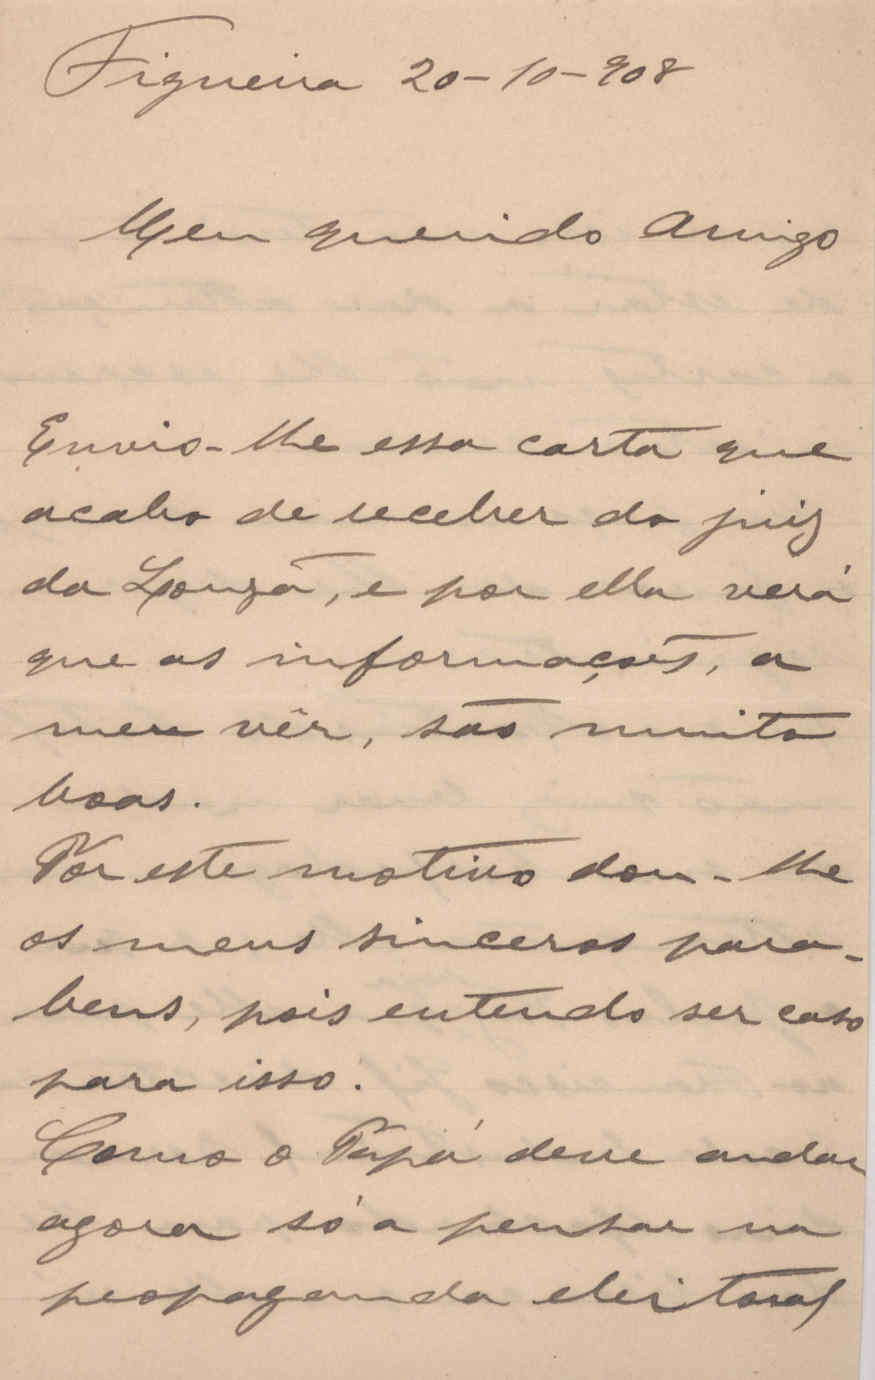 Figueira 20-10-908
Meu querido Amigo
Envio-lhe essa carta que
acabo de receber do juiz
da Louzã, e por ella verá
que as informações, a
meu vêr, são muito
boas.
Por este motivo dou-lhe
os meus sinceros para-
bens, pois entendo ser caso
para isso.
Como o Papá deve andar
agora só a pensar na
propaganda eleitoral